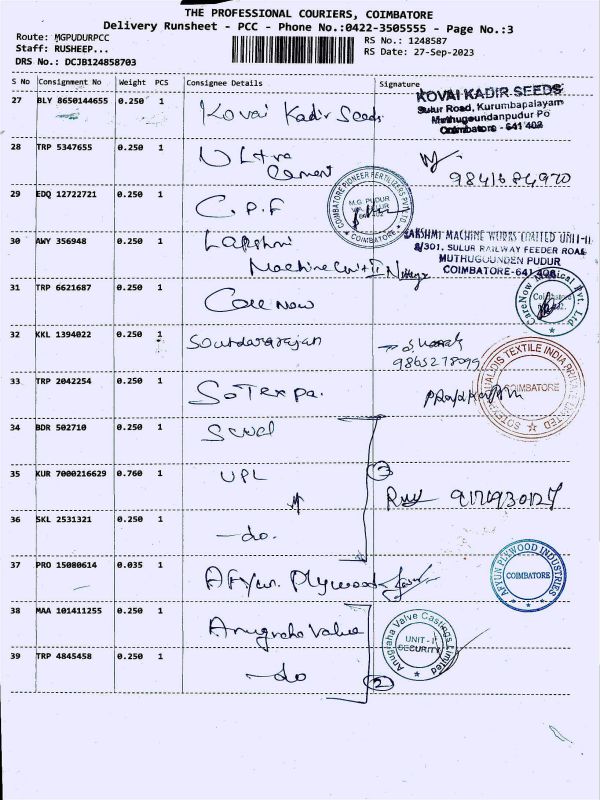 THE PROFESSIONAL COURIERS, COIMBATORE
Delivery Runsheet - PCC - Phone No.:0422-3505555 - Page No.:3
Route: MGPUDURPCC
RS No.: 1248587
Staff: RUSHEEP...
RS Date: 27-Sep-2023
DRS No.: DCJB124858703
S No Consignment No Weight PCS Consignee Details Signature
27 BLY 8650144655 0.250 1 Kovai Kadir Seeds
KOVAI KADIR SEEDS
Sulur Road, Kurumbapalayam
Muthugoundanpudur Po
Coimbatore - 641 402
28 TRP 5347655 0.250 1 Ultra
Cement
29 EDQ 12722721 0.250 1 C.P.F
COIMBATORE PIONEER FERTILIZERS PVT. LTD
M.G. PUDUR
COIMBATORE
30 AWY 356948 0.250 1 Lakshmi
Machine Unit II
LAKSHMI MACHINE WORKS LIMITED UNIT-II
8/301, SULUR RAILWAY FEEDER ROAD
MUTHUGOUNDEN PUDUR
COIMBATORE-641 406
31 TRP 6621687 0.250 1 Care Now
CareNow Medical Pvt. Ltd
Coimbatore
32 KKL 1394022 0.250 1 Soundararajan
9865278099
33 TRP 2042254 0.250 1 SoTexpa.
TEXTILE INDIA PRIVATE LIMITED
COIMBATORE
34 BDR 502710 0.250 1
35 KUR 7000216629 0.760 1 UPL
3
36 SKL 2531321 0.250 1 -do.
37 PRO 15080614 0.035 1 Afyun. Plywood
AFYUN PLYWOOD INDUSTRIES
COIMBATORE
38 MAA 101411255 0.250 1 Anugraha Valve
Anugraha Valve Castings Limited
UNIT - I
SECURITY
39 TRP 4845458 0.250 1 -do
2